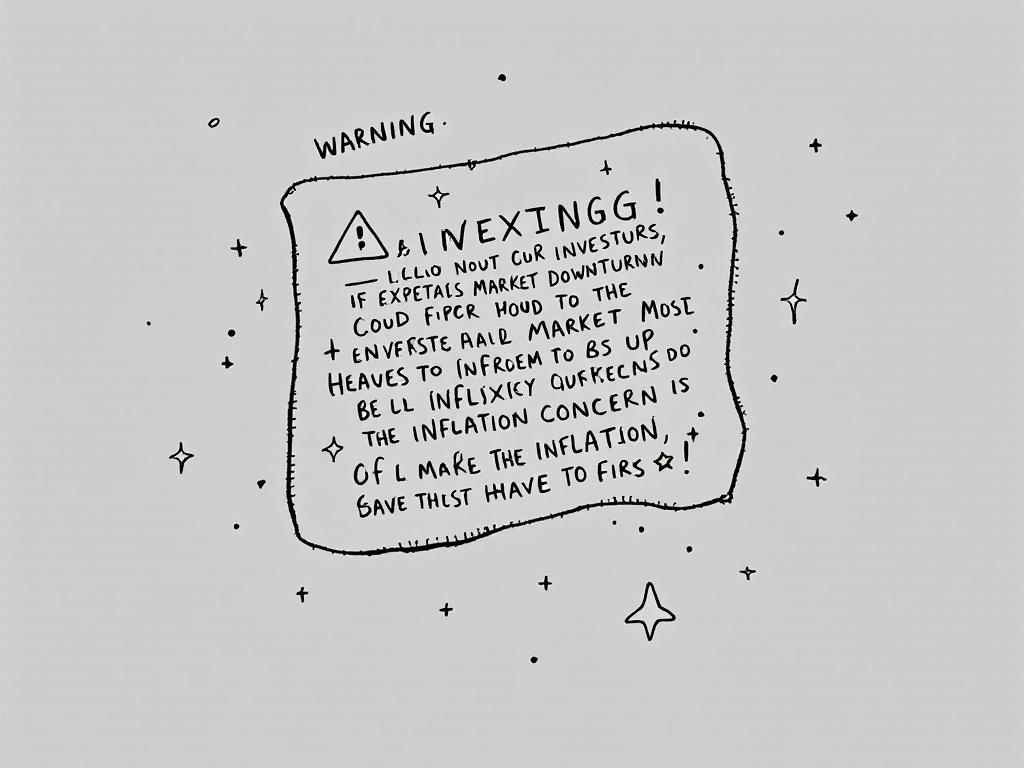 WARNING.
& INEXINGG!
NOUT CUR INVESTURS,
IF EXPETALS MARKET DOWNTURNN
COUD FIPCR HOUD TO THE
ENVERSTE AAIR MARKET MOST
HEAVES TO INFROEM TO BS UP
BE LL INFLIXICY QUFKECNS DO
THE INFLATION CONCERN IS
OF L MAKE THE INFLATION,
SAVE THIST HHAVE TO FIRS ☆!